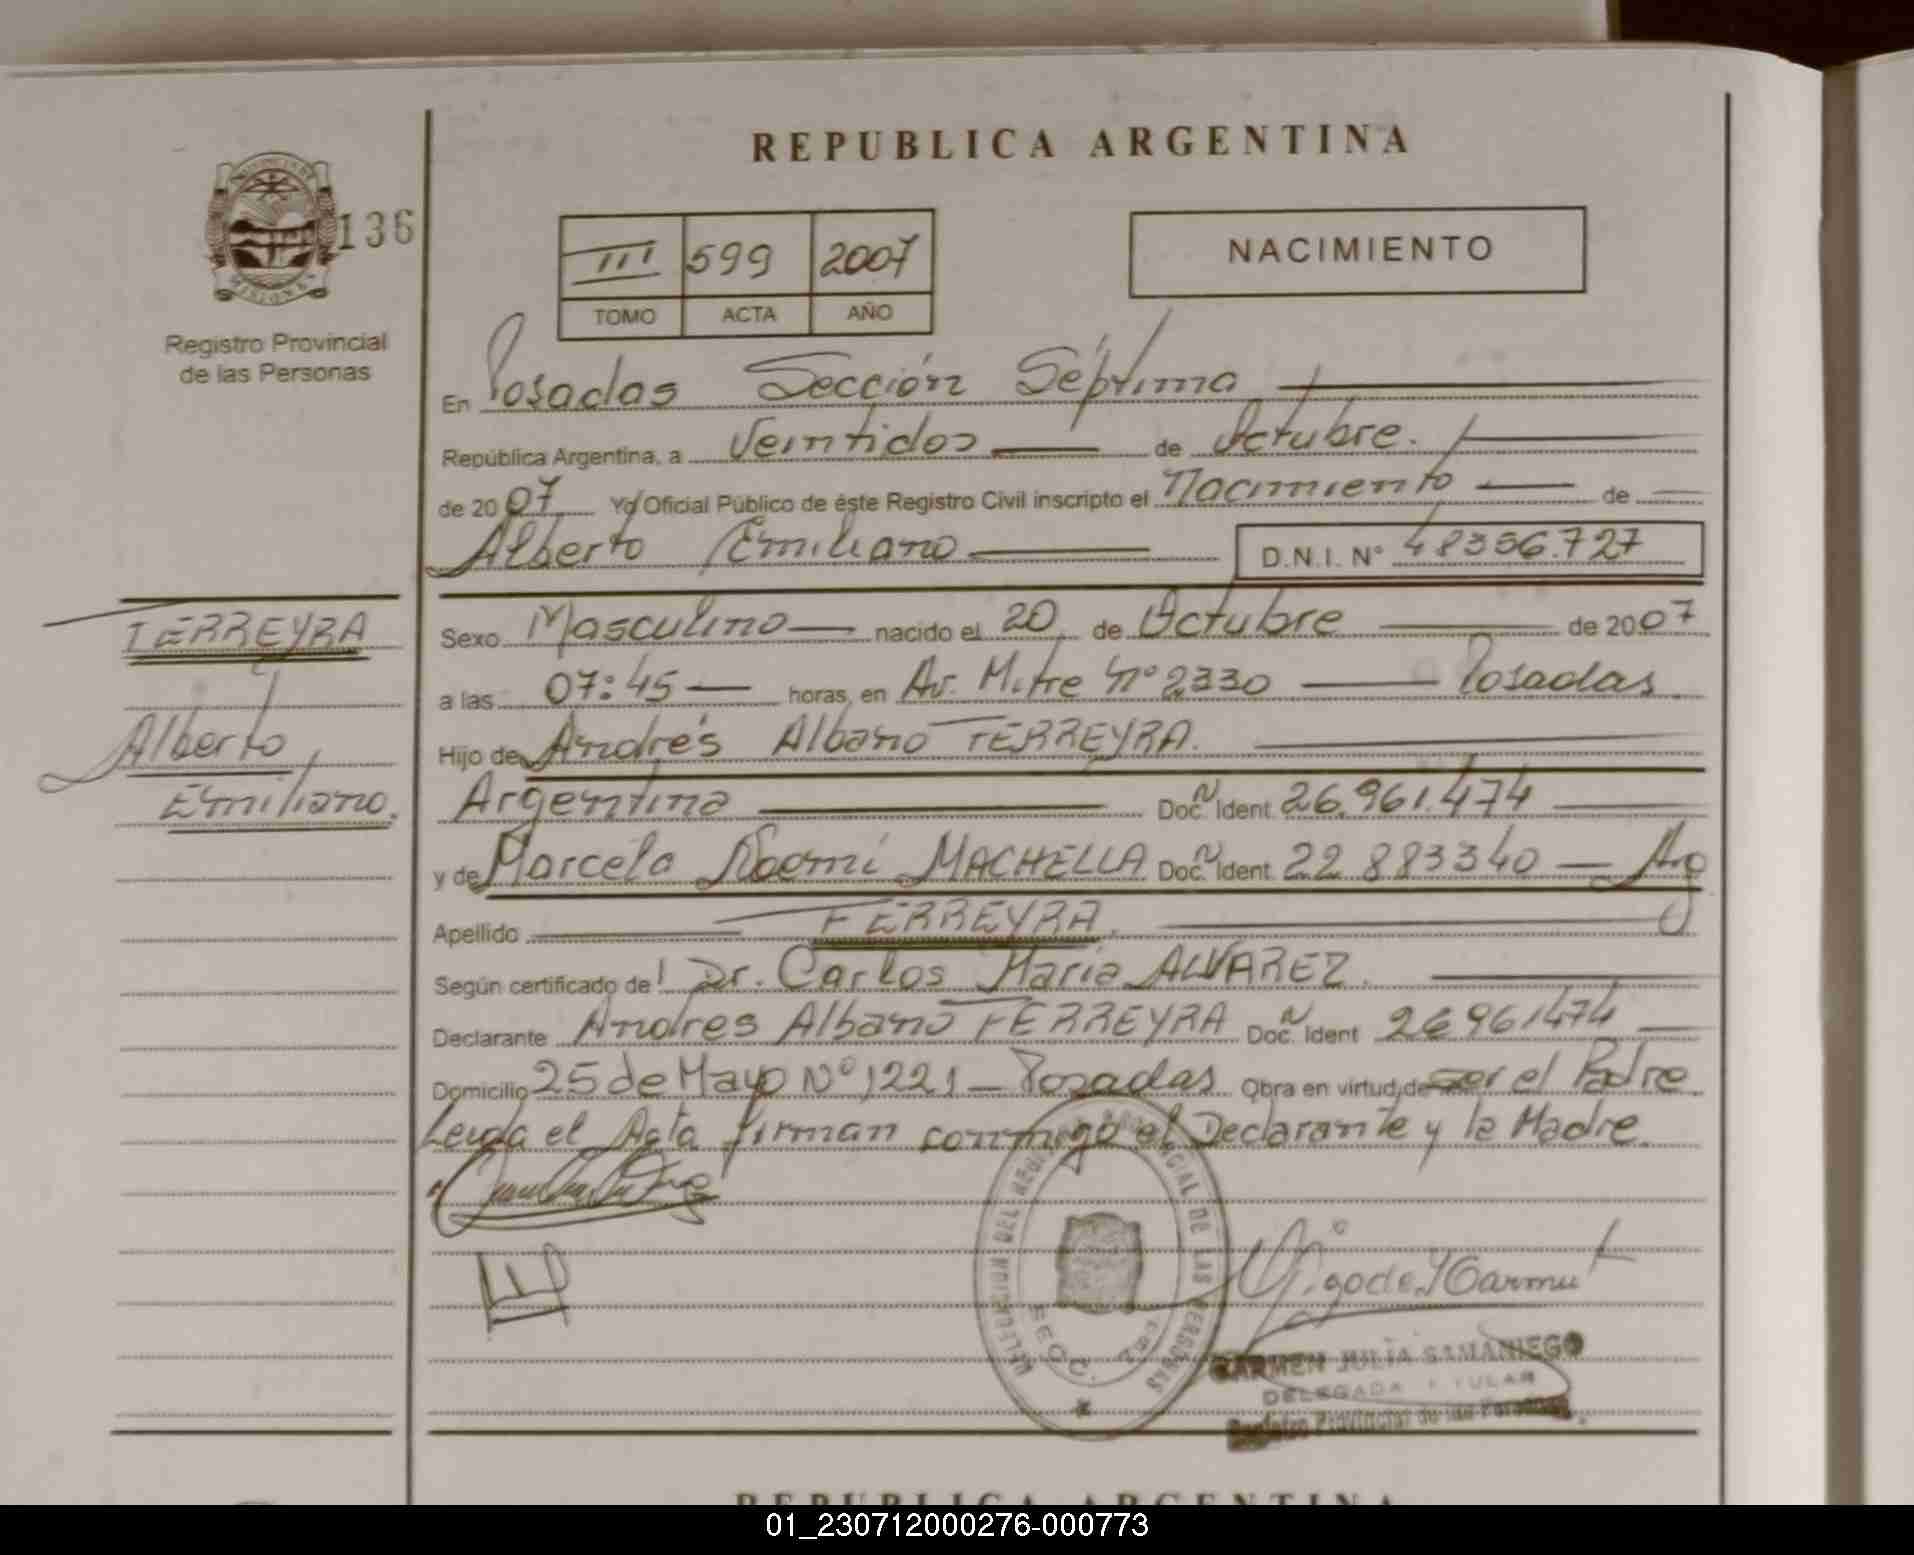 REPUBLICA ARGENTINA
136
III 599 2007
TOMO ACTA AÑO
NACIMIENTO
Registro Provincial
de las Personas
En Posadas Sección Séptima
República Argentina, a Veintidos de Octubre.
de 2007 Yo Oficial Público de éste Registro Civil inscripto el Nacimiento de
Alberto Emiliano D.N.I. N° 48356.727
FERREYRA
Alberto
Emiliano.
Sexo Masculino nacido el 20 de Octubre de 2007
a las 07:45 horas, en Av. Mitre N° 2330 Posadas
Hijo de Andrés Albano FERREYRA.
Argentina Doc. N Ident. 26.961.474
y de Marcela Noemí MACHELLA Doc. N Ident. 22 883340 Arg
Apellido FERREYRA.
Según certificado del Dr. Carlos María ALVAREZ.
Declarante Andres Albano FERREYRA Doc. N Ident 26961474
Domicilio 25 de Mayo N° 1221 - Posadas Obra en virtud de ser el Padre
Leida el Acta firman conmigo el Declarante y la Madre.
CARMEN JULIA SAMANIEGO
DELEGADA TITULAR
Registro Provincial de las Personas
REPUBLICA ARGENTINA
01_230712000276-000773